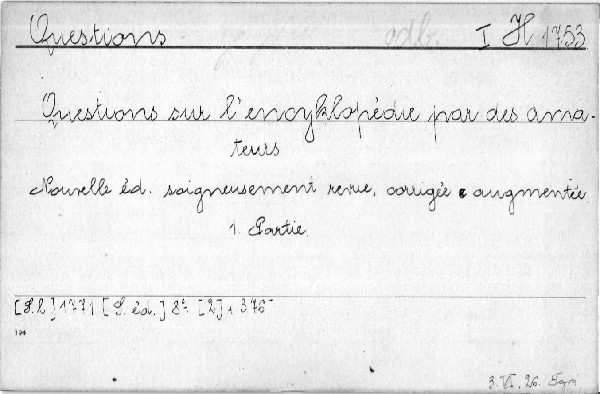 Questions odb. I H 1753
Questions sur l'encyklopédie par des ama-
teurs
Nouvelle éd. soigneusement revue, corrigée e augmentée
1. Partie.
[S.l.] 1771 [S. éd.] 8° [2], 376
194
3. VI. 26.